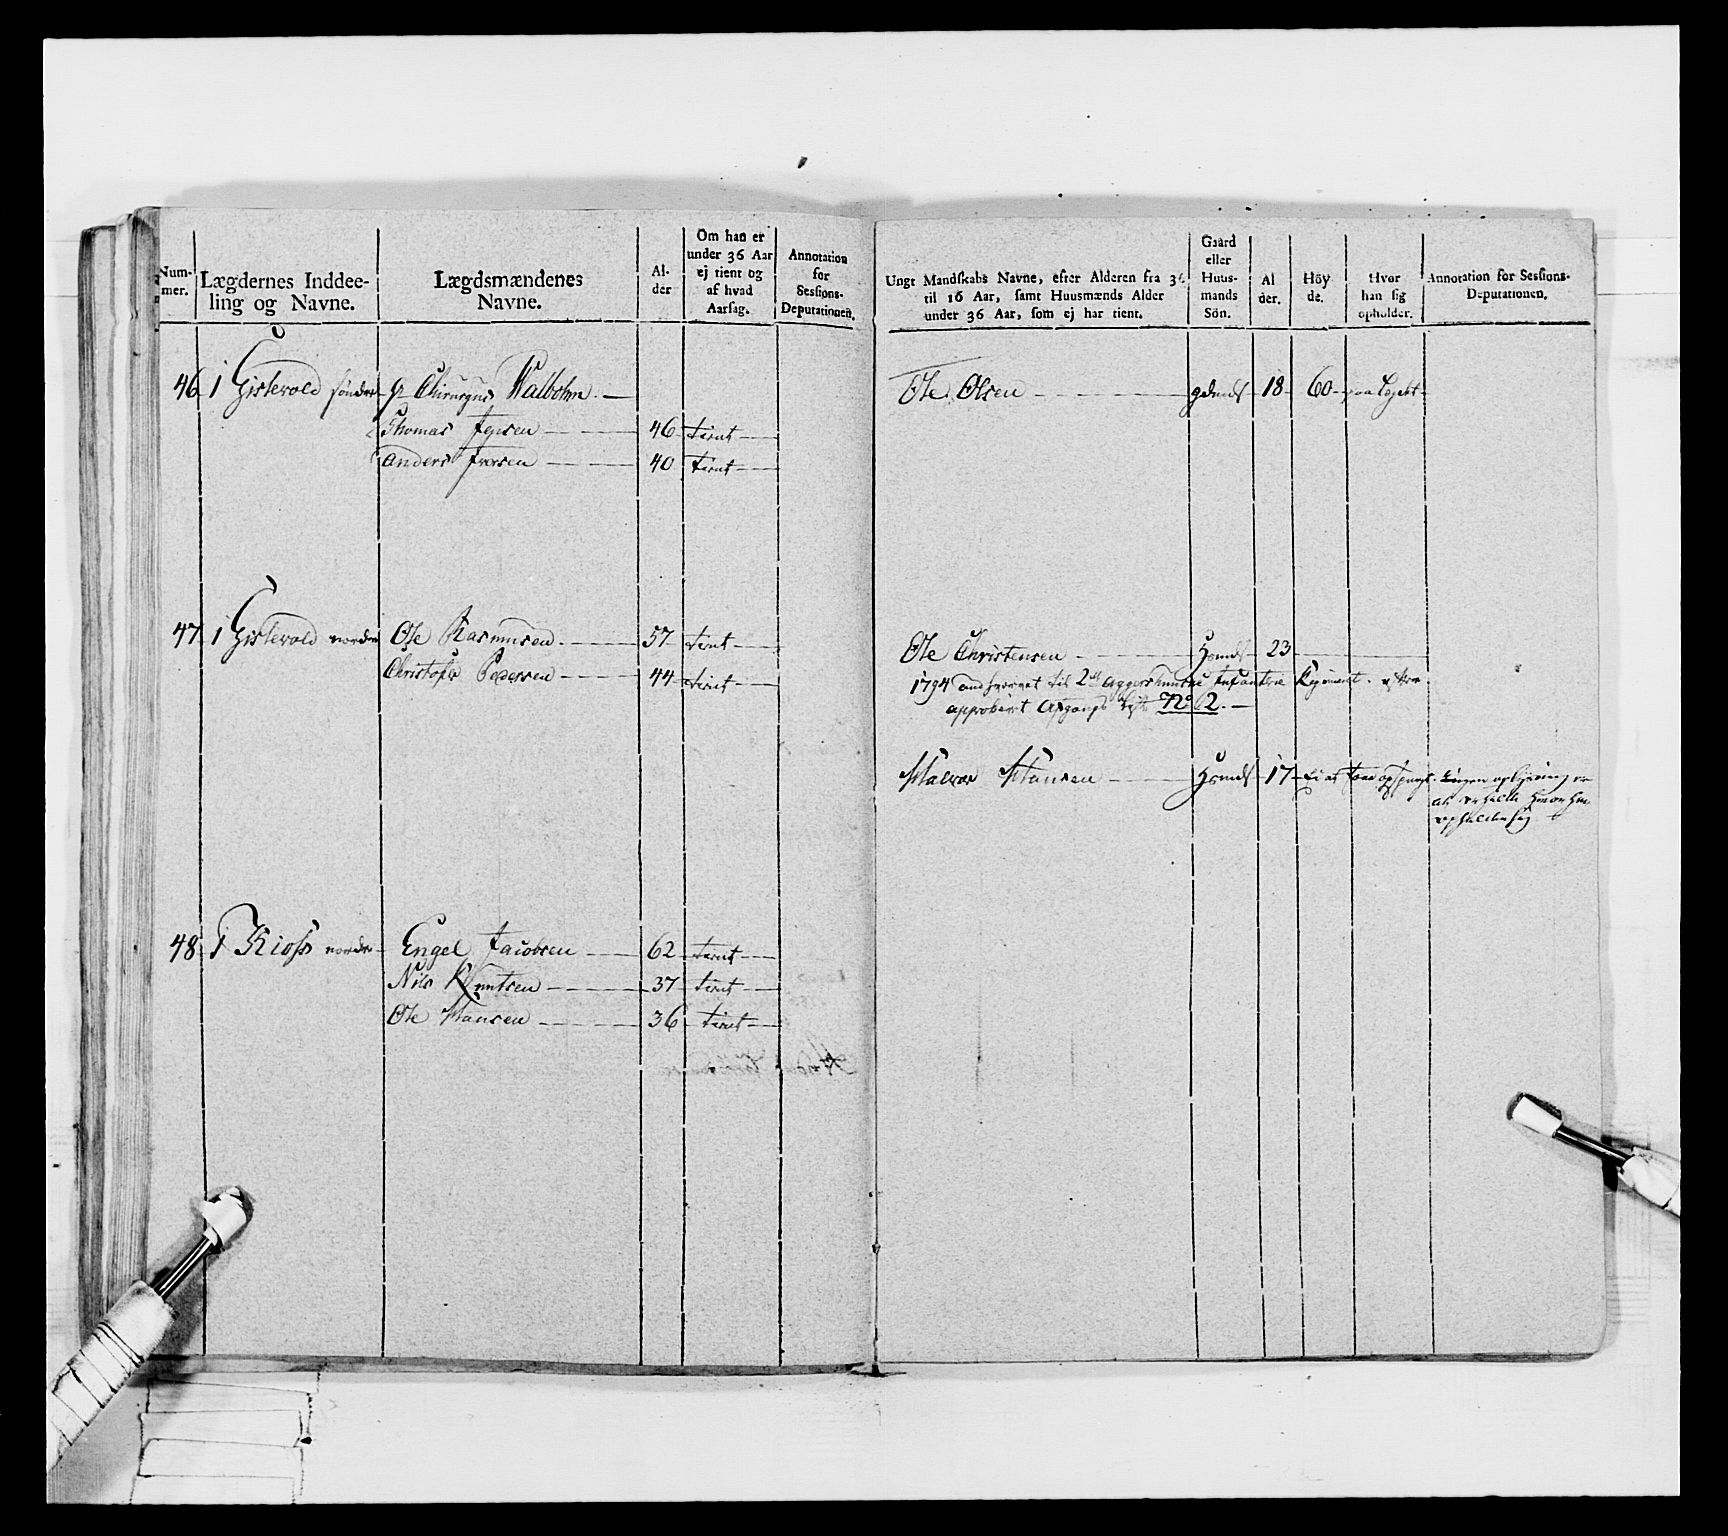 Num-
mer.
Lægdernes Inddee-
ling og Navne.
Lægdsmændenes
Navne.
Al-
der
Om han er
under 36 Aar
ej tient og
af hvad
Aarsag.
Annotation
for
Sessions-
Deputationen.
46 1 Gislevold søndre
Chirurgus Walbohm
Thomas Jensen 46 tient
Anders Iversen 40 tient
47 1 Gislevold nordre Ole Rasmusen 57 tient
Christofer Pedersen 44 tient
48 1 Kioss nordre Engel Jacobsen 62 tient
Nils Knutsen 37 tient
Ole Hansen 36 tient
Ungt Mandskabs Navne, efter Alderen fra 36
til 16 Aar, samt Huusmænds Alder
under 36 Aar, som ej har tient.
Gaard
eller
Huus-
mands
Sön.
Al
der.
Höy-
de.
Hvor
han sig
opholder.
Annotation for Sessions-
Deputationen.
Ole Olsen gdmds 18 60 paa Legdet
Ole Christensen Hsmds 23
1794 til 2det Aggershuuske Infanterie Regiment
approbert Afgangs Liste No 62.
Halvor Hansen Hsmds 17 Ei at faae opspurgt. Ingen oplysning er
at erholde hvor han
opholder sig